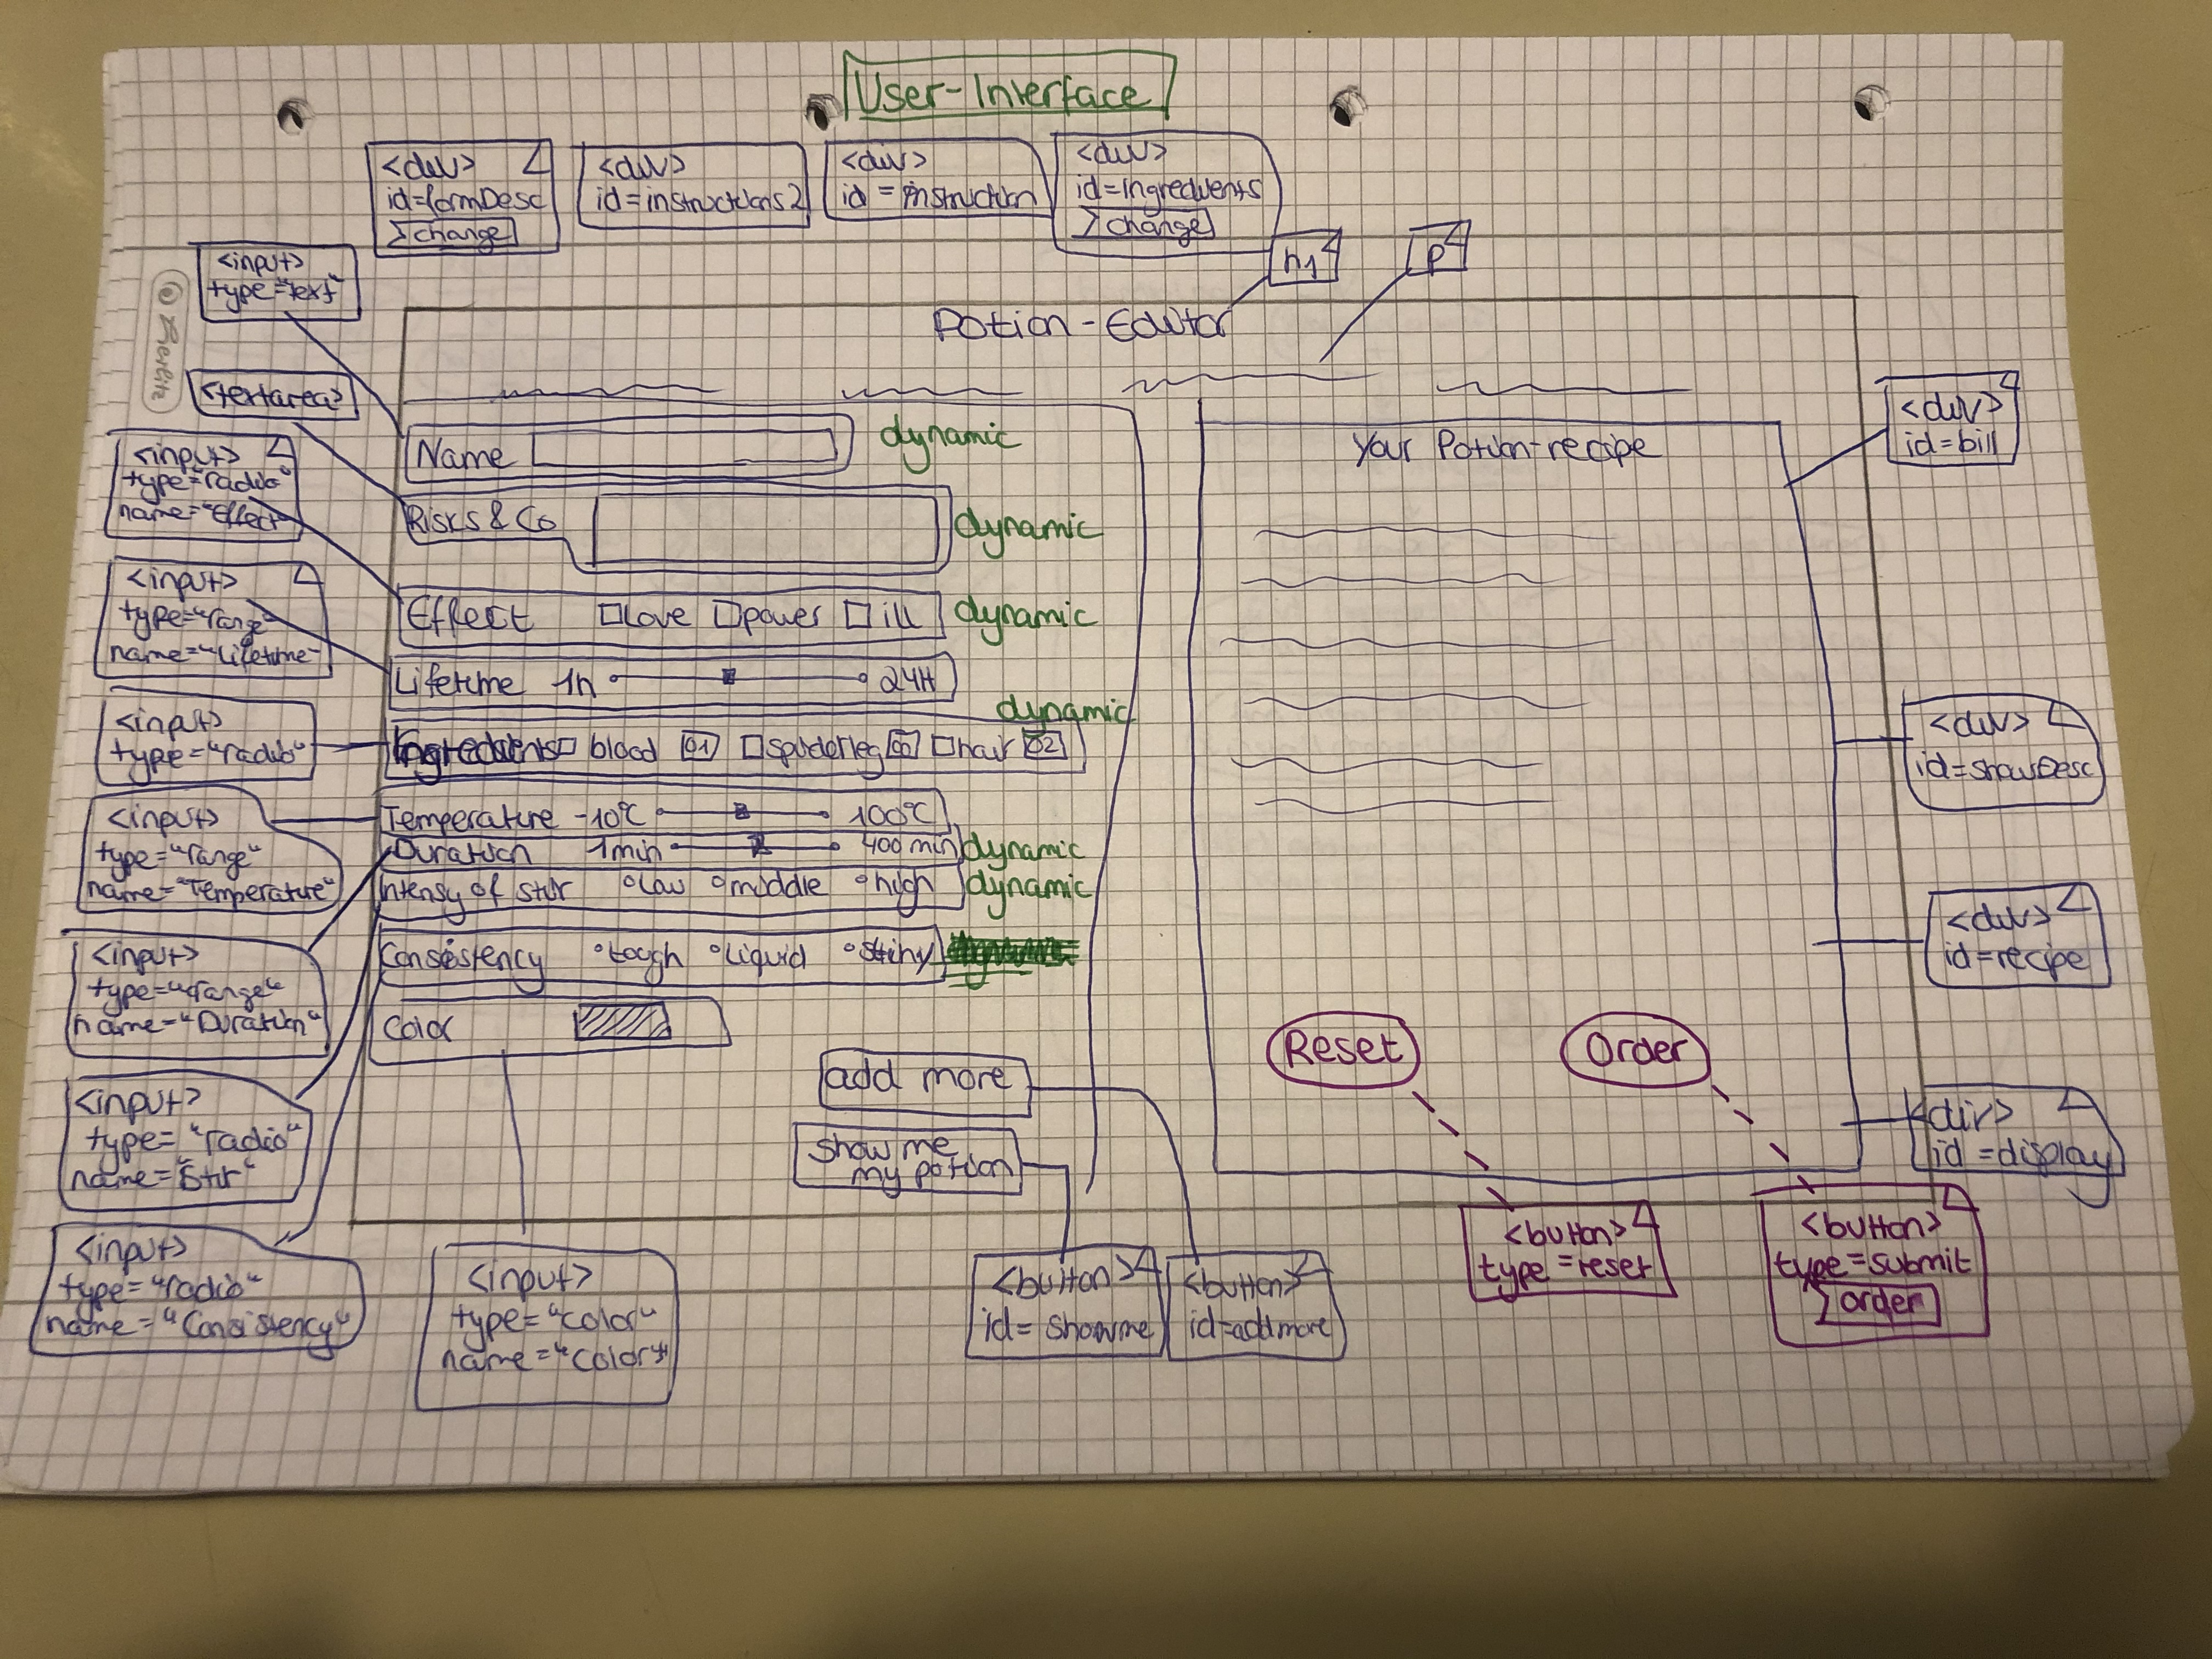 User-Interface
<div>
id=formDesc
change
<div>
id=instructions2
<div>
id=instruction
<div>
id=ingredients
change
h1
p
<input>
type="text"
<textarea>
<input>
type="radio"
name="Effect"
<input>
type="range"
name="Lifetime"
<input>
type="radio"
<input>
type="range"
name="Temperature"
<input>
type="range"
name="Duration"
<input>
type="radio"
name="Stir"
<input>
type="radio"
name="Consistency"
Potion-Editor
Name
dynamic
Risks & Co
dynamic
Effect love power ill
dynamic
Lifetime 1h 24H
dynamic
Ingredients blood 01 hair 02
Temperature -10°C 100°C
Duration 1min 400min
dynamic
Intensy of stir low middle high
dynamic
Consistency tough liquid
Color
add more
Show me
my potion
Your Potion-recipe
Reset
Order
<input>
type="color"
name="Color"
<button>
id=showme
<button>
id=addmore
<button>
type=reset
<button>
type=submit
order
<div>
id=bill
<div>
id=showDesc
<div>
id=recipe
<div>
id=display